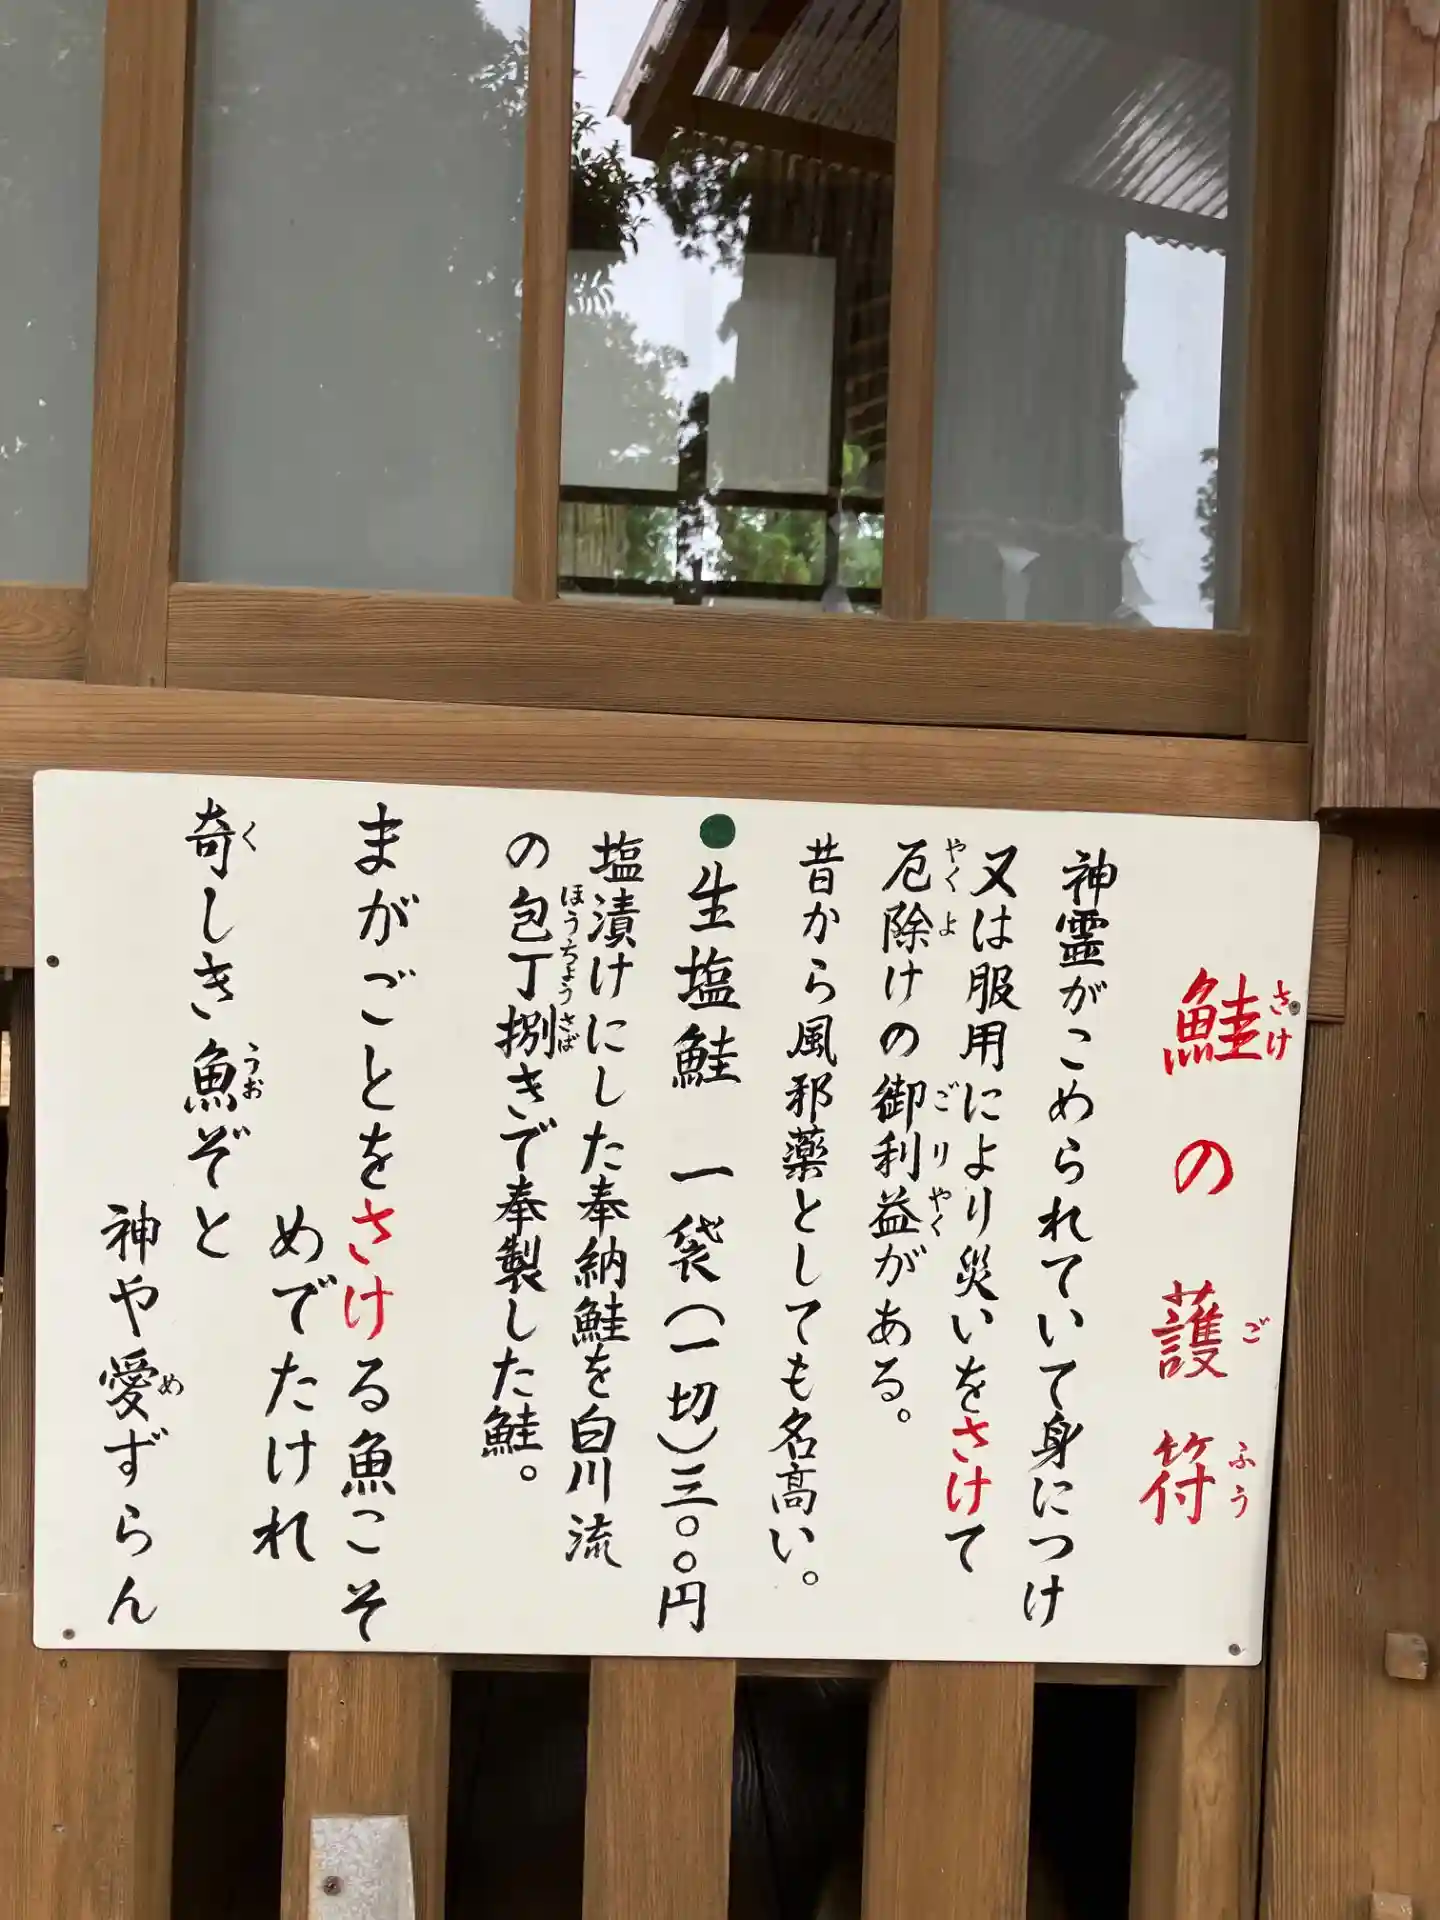 鮭の護符
さけ ご ふう
神霊がこめられていて身につけ
又は服用により災いをさけて
厄除けの御利益がある。
やくよ ごりやく
昔から風邪薬としても名高い。
●生塩鮭 一袋(一切)三〇〇円
塩漬けにした奉納鮭を白川流
の包丁捌きで奉製した鮭。
ほうちょうさば
まがごとをさける魚こそ
めでたけれ
奇しき魚ぞと
く うお
神や愛ずらん
め